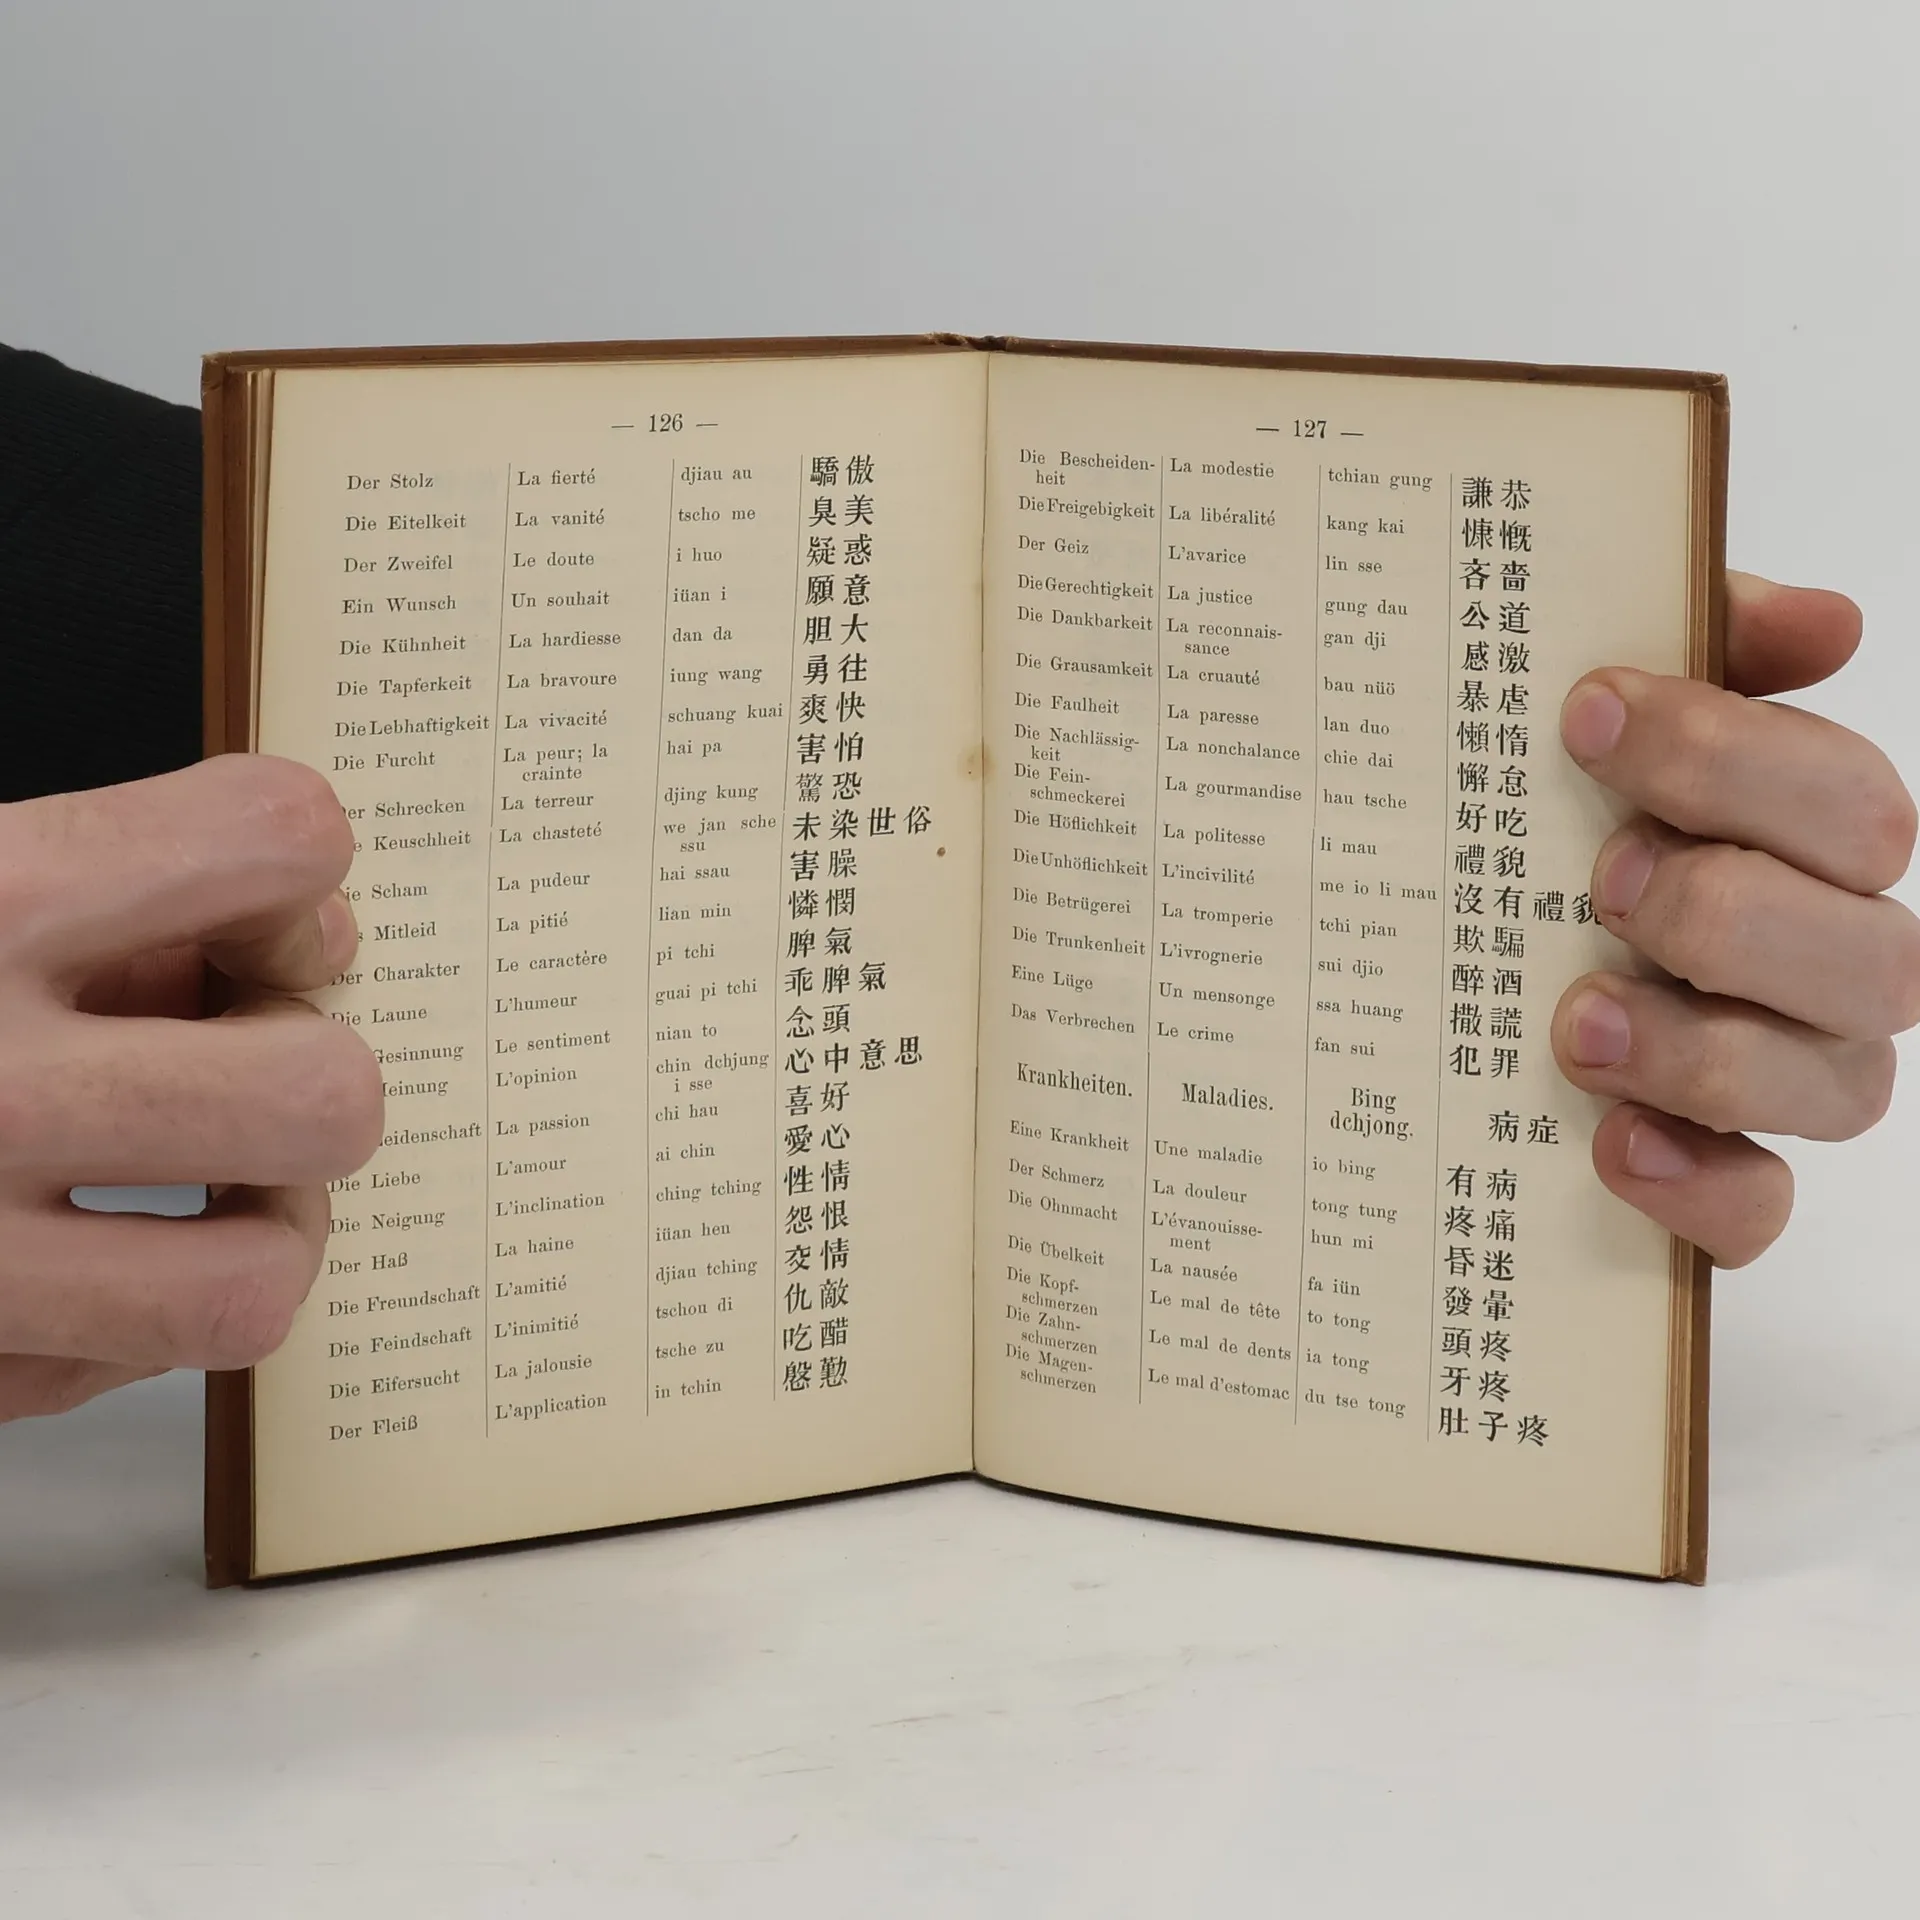 — 126 —
Der Stolz La fierté djiau au 驕傲
Die Eitelkeit La vanité tscho me 臭美
Der Zweifel Le doute i huo 疑惑
Ein Wunsch Un souhait iüan i 願意
Die Kühnheit La hardiesse dan da 胆大
Die Tapferkeit La bravoure iung wang 勇往
Die Lebhaftigkeit La vivacité schuang kuai 爽快
Die Furcht La peur; la hai pa 害怕
crainte
Der Schrecken La terreur djing kung 驚恐
Keuschheit La chasteté we jan sche 未染世俗
ssu
Die Scham La pudeur hai ssau 害臊
Mitleid La pitié lian min 憐憫
Der Charakter Le caractère pi tchi 脾氣
Die Laune L'humeur guai pi tchi 乖脾氣
Gesinnung Le sentiment nian to 念頭
Meinung L'opinion chin dchjung 心中意思
i sse
Leidenschaft La passion chi hau 喜好
Die Liebe L'amour ai chin 愛心
Die Neigung L'inclination ching tching 性情
Der Haß La haine iüan hen 怨恨
Die Freundschaft L'amitié djiau tching 交情
Die Feindschaft L'inimitié tschou di 仇敵
Die Eifersucht La jalousie tsche zu 吃醋
Der Fleiß L'application in tchin 慇懃
— 127 —
Die Bescheiden- La modestie tchian gung 謙恭
heit
Die Freigebigkeit La libéralité kang kai 慷慨
Der Geiz L'avarice lin sse 吝嗇
Die Gerechtigkeit La justice gung dau 公道
Die Dankbarkeit La reconnais- gan dji 感激
sance
Die Grausamkeit La cruauté bau nüö 暴虐
Die Faulheit La paresse lan duo 懶惰
Die Nachlässig- La nonchalance chie dai 懈怠
keit
Die Fein- La gourmandise hau tsche 好吃
schmeckerei
Die Höflichkeit La politesse li mau 禮貌
Die Unhöflichkeit L'incivilité me io li mau 沒有禮貌
Die Betrügerei La tromperie tchi pian 欺騙
Die Trunkenheit L'ivrognerie sui djio 醉酒
Eine Lüge Un mensonge ssa huang 撒謊
Das Verbrechen Le crime fan sui 犯罪
Krankheiten. Maladies. Bing 病症
dchjong.
Eine Krankheit Une maladie io bing 有病
Der Schmerz La douleur tong tung 疼痛
Die Ohnmacht L'évanouisse- hun mi 昏迷
ment
Die Übelkeit La nausée fa iün 發暈
Die Kopf- Le mal de tête to tong 頭疼
schmerzen
Die Zahn- Le mal de dents ia tong 牙疼
schmerzen
Die Magen- Le mal d'estomac du tse tong 肚子疼
schmerzen